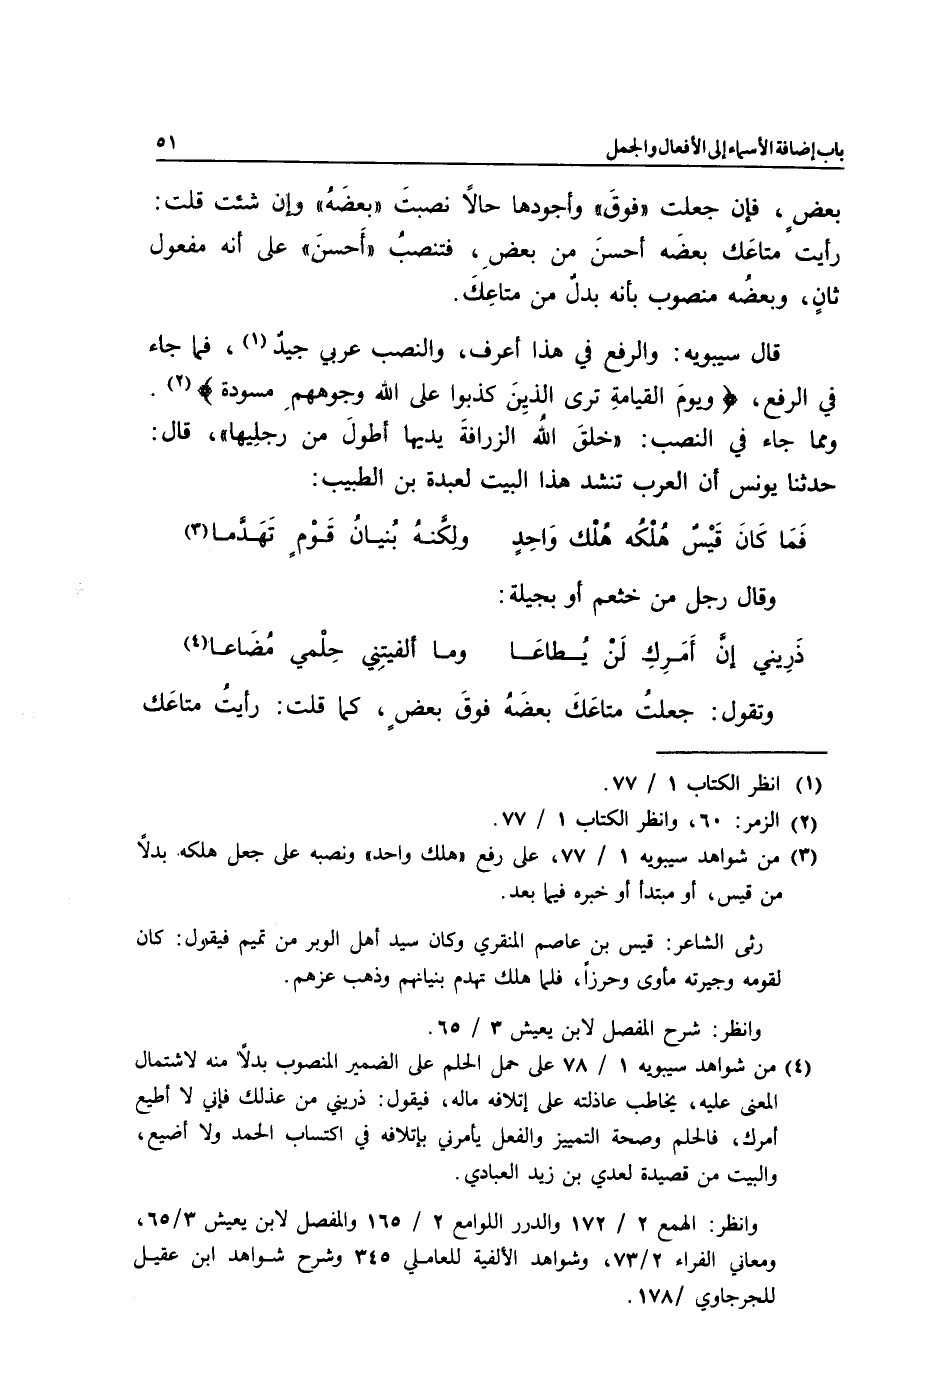 باب إضافة الأسماء إلى الأفعال والجمل ٥١
بعضٍ، فإن جعلت «فوقَ» وأجودها حالًا نصبتَ «بعضَهُ» وإن شئت قلت:
رأيت متاعَك بعضَه أحسنَ من بعضٍ، فتنصبُ «أَحسنَ» على أنه مفعول
ثانٍ، وبعضُه منصوب بأنه بدلٌ من متاعِكَ.
قال سيبويه: والرفع في هذا أعرف، والنصب عربي جيدٌ(١)، فما جاء
في الرفع، ﴿ويومَ القيامةِ ترى الذينَ كذبوا على الله وجوههم مسودة﴾(٢).
ومما جاء في النصب: «خلقَ اللهُ الزرافةَ يديها أطولَ من رجلِيها»، قال:
حدثنا يونس أن العرب تنشد هذا البيت لعبدة بن الطبيب:
فَمَا كَانَ قَيْسٌ هُلْكُه هُلْك وَاحِدٍ ولكِنَّهُ بُنيانُ قَوْمٍ تَهَدَّما(٣)
وقال رجل من خثعم أو بجيلة:
ذَرِيني إنَّ أَمَركِ لَنْ يُطاعَا وما ألفيتِني حِلْمي مُضَاعا(٤)
وتقول: جعلتُ متاعَكَ بعضَهُ فوقَ بعضٍ، كما قلت: رأيتُ متاعَك
(١) انظر الكتاب ١ / ٧٧.
(٢) الزمر: ٦٠، وانظر الكتاب ١ / ٧٧.
(٣) من شواهد سيبويه ١ / ٧٧، على رفع «هلك واحد» ونصبه على جعل هلكه بدلًا
من قيس، أو مبتدأ أو خبره فيما بعد.
رثى الشاعر: قيس بن عاصم المنقري وكان سيد أهل الوبر من تميم فيقول: كان
لقومه وجيرته مأوى وحرزاً، فلما هلك تهدم بنيانهم وذهب عزهم.
وانظر: شرح المفصل لابن يعيش ٣ / ٦٥.
(٤) من شواهد سيبويه ١ / ٧٨ على حمل الحلم على الضمير المنصوب بدلًا منه لاشتمال
المعنى عليه، يخاطب عاذلته على إتلافه ماله، فيقول: ذريني من عذلك فإني لا أطيع
أمرك، فالحلم وصحة التمييز والفعل يأمرني بإتلافه في اكتساب الحمد ولا أضيع،
والبيت من قصيدة لعدي بن زيد العبادي.
وانظر: الهمع ٢ / ١٧٢ والدرر اللوامع ٢ / ١٦٥ والمفصل لابن يعيش ٦٥/٣،
ومعاني الفراء ٧٣/٢، وشواهد الألفية للعاملي ٣٤٥ وشرح شواهد ابن عقيل
للجرجاوي /١٧٨.